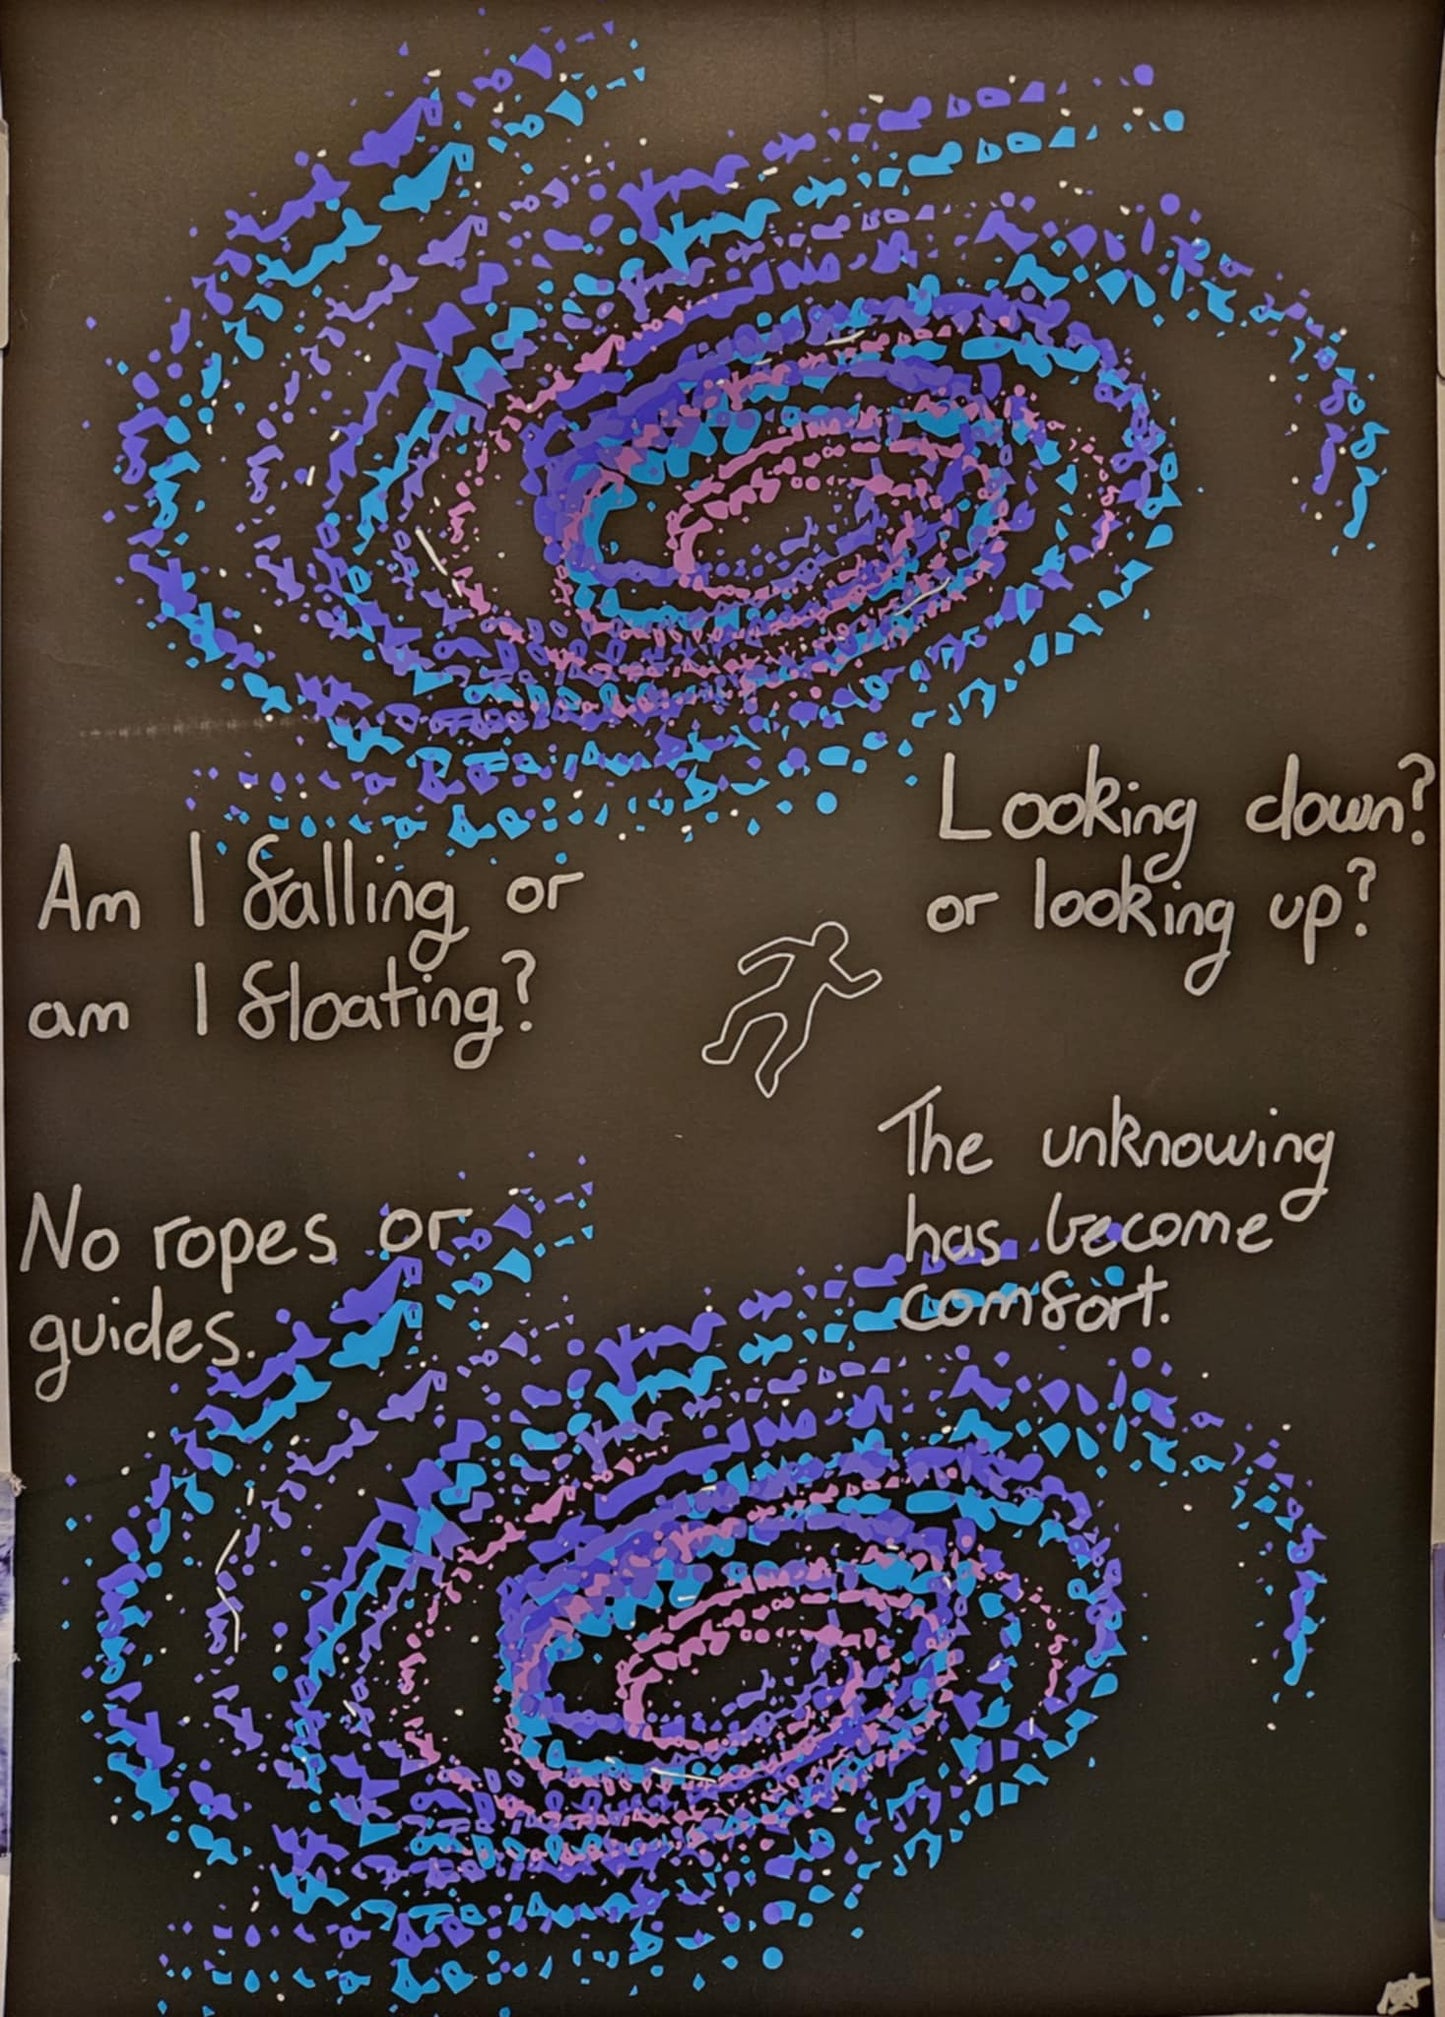 Am I falling or
am I floating?
Looking down?
or looking up?
No ropes or
guides.
The unknowing
has become
comfort.